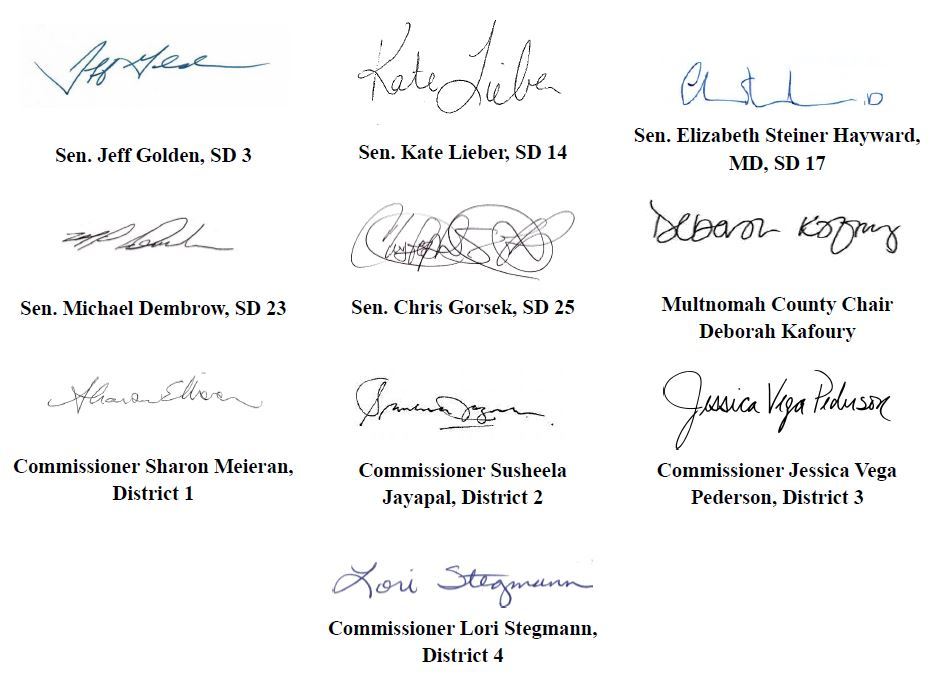 Kate Lieber
Sen. Jeff Golden, SD 3
Sen. Kate Lieber, SD 14
Sen. Elizabeth Steiner Hayward,
MD, SD 17
Deborah Kafoury
Sen. Michael Dembrow, SD 23
Sen. Chris Gorsek, SD 25
Multnomah County Chair
Deborah Kafoury
Jessica Vega Pederson
Commissioner Sharon Meieran,
District 1
Commissioner Susheela
Jayapal, District 2
Commissioner Jessica Vega
Pederson, District 3
Lori Stegmann
Commissioner Lori Stegmann,
District 4